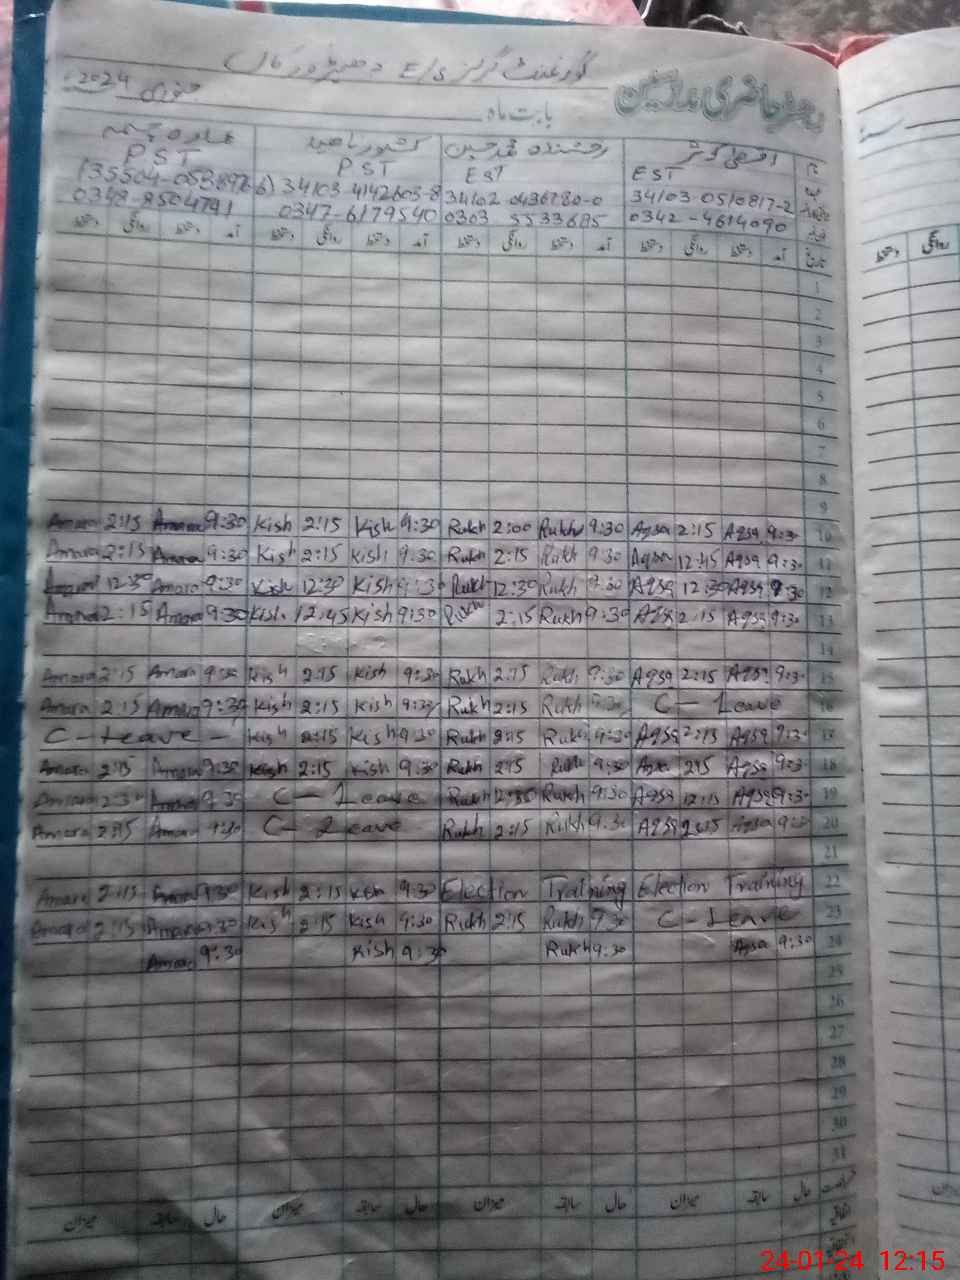 گورنمنٹ گرلز E/S
رجسٹر حاضری مدرسین
بابت ماہ جنوری 2024
نام اقصیٰ کوثر رخشندہ محمد حسین کشور ناہید عمارہ
EST EST PST PST
34103-0510817-2 34102 34103 4142605-8
0342-4614090 0303 5533685 0347-6179540 0348-8504791
تاریخ آمد دستخط روانگی دستخط آمد دستخط روانگی دستخط آمد دستخط روانگی دستخط آمد دستخط روانگی دستخط
1
2
3
4
5
6
7
8
9
Amara 2:15 Amara 9:30 Kish 2:15 Kish 9:30 Rukh 2:00 Rukh 9:30 Aqsa 2:15 Aqsa 9:30 10
Amara 2:15 Amara 9:30 Kish 2:15 Kish 9:30 Rukh 2:15 Rukh 9:30 Aqsa 12:45 Aqsa 9:30 11
Amara 12:30 Amara 9:30 Kish 12:30 Kish 9:30 Rukh 12:30 Rukh 9:30 Aqsa 12:30 Aqsa 9:30 12
Amara 2:15 Amara 9:30 Kish 12:45 Kish 9:30 Rukh 2:15 Rukh 9:30 Aqsa 2:15 Aqsa 9:30 13
14
Amara 2:15 Amara 9:30 Kish 2:15 Kish 9:30 Rukh 2:15 Rukh 9:30 Aqsa 2:15 Aqsa 9:30 15
Amara 2:15 Amara 9:30 Kish 2:15 Kish 9:30 Rukh 2:15 Rukh 9:30 C - Leave 16
C - Leave - Kish 2:15 Kish 9:30 Rukh 2:15 Rukh 9:30 Aqsa 2:15 Aqsa 9:30 17
Amara 2:15 Amara 9:30 Kish 2:15 Kish 9:30 Rukh 2:15 Rukh 9:30 Aqsa 2:15 Aqsa 9:30 18
Amara Amara 9:30 C - Leave Rukh Rukh 9:30 Aqsa 12:15 Aqsa 9:30 19
Amara 2:15 Amara 9:30 C - Leave Rukh 2:15 Rukh 9:30 Aqsa 2:15 Aqsa 9:30 20
21
Amara 2:15 Amara 9:30 Kish 2:15 Kish 9:30 Election Training Election Training 22
Amara 2:15 Amara 9:30 Kish 2:15 Kish 9:30 Rukh 2:15 Rukh 9:30 C - Leave 23
Amara 9:30 Kish 9:30 Rukh 9:30 Aqsa 9:30 24
25
26
27
28
29
30
31
حال سابقہ میزان حال سابقہ میزان حال سابقہ میزان حال سابقہ میزان
دستخط روانگی
24-01-24 12:15